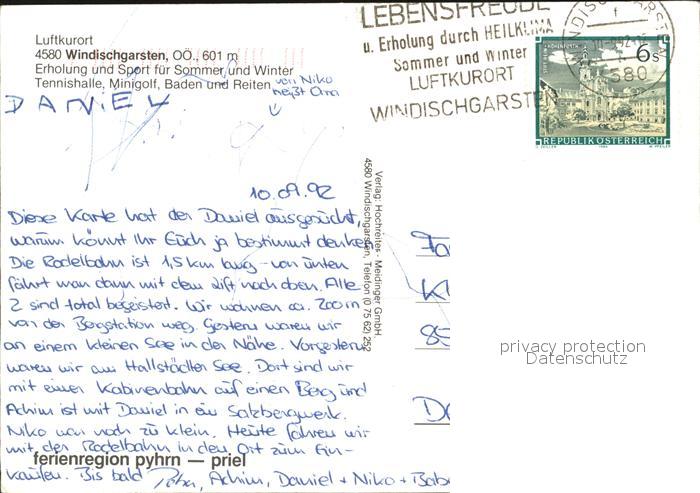 Luftkurort
4580 Windischgarsten, OÖ., 601 m
Erholung und Sport für Sommer und Winter
Tennishalle, Minigolf, Baden und Reiten
von Niko
heißt Oma
DANIEL
LEBENSFREUDE
u. Erholung durch HEILKLIMA
Sommer und Winter
LUFTKURORT
WINDISCHGARSTEN
WINDISCHGARSTEN
580
6 s
REPUBLIK ÖSTERREICH
10.09.92
Diese Karte hat der Daniel ausgesucht,
warum könnt Ihr Euch ja bestimmt denken.
Die Rodelbahn ist 1,5 km lang - von unten
fährt man dann mit dem Lift nach oben. Alle
2 sind total begeistert. Wir wohnen ca. 200 m
von der Bergstation weg. Gestern waren wir
an einem kleinen See in der Nähe. Vorgestern
waren wir am Hallstädter See. Dort sind wir
mit einer Kabinenbahn auf einen Berg und
Achim ist mit Daniel in ein Salzbergwerk.
Niko war noch zu klein. Heute fahren wir
mit der Rodelbahn in den Ort zum Ein-
kaufen. Bis bald Petra, Achim, Daniel + Niko + Bab
ferienregion pyhrn — priel
Verlag: Hochreiter - Meidinger GmbH.
4580 Windischgarsten, Telefon (0 75 62) 252
Fa
Kl
85
privacy protection
Datenschutz